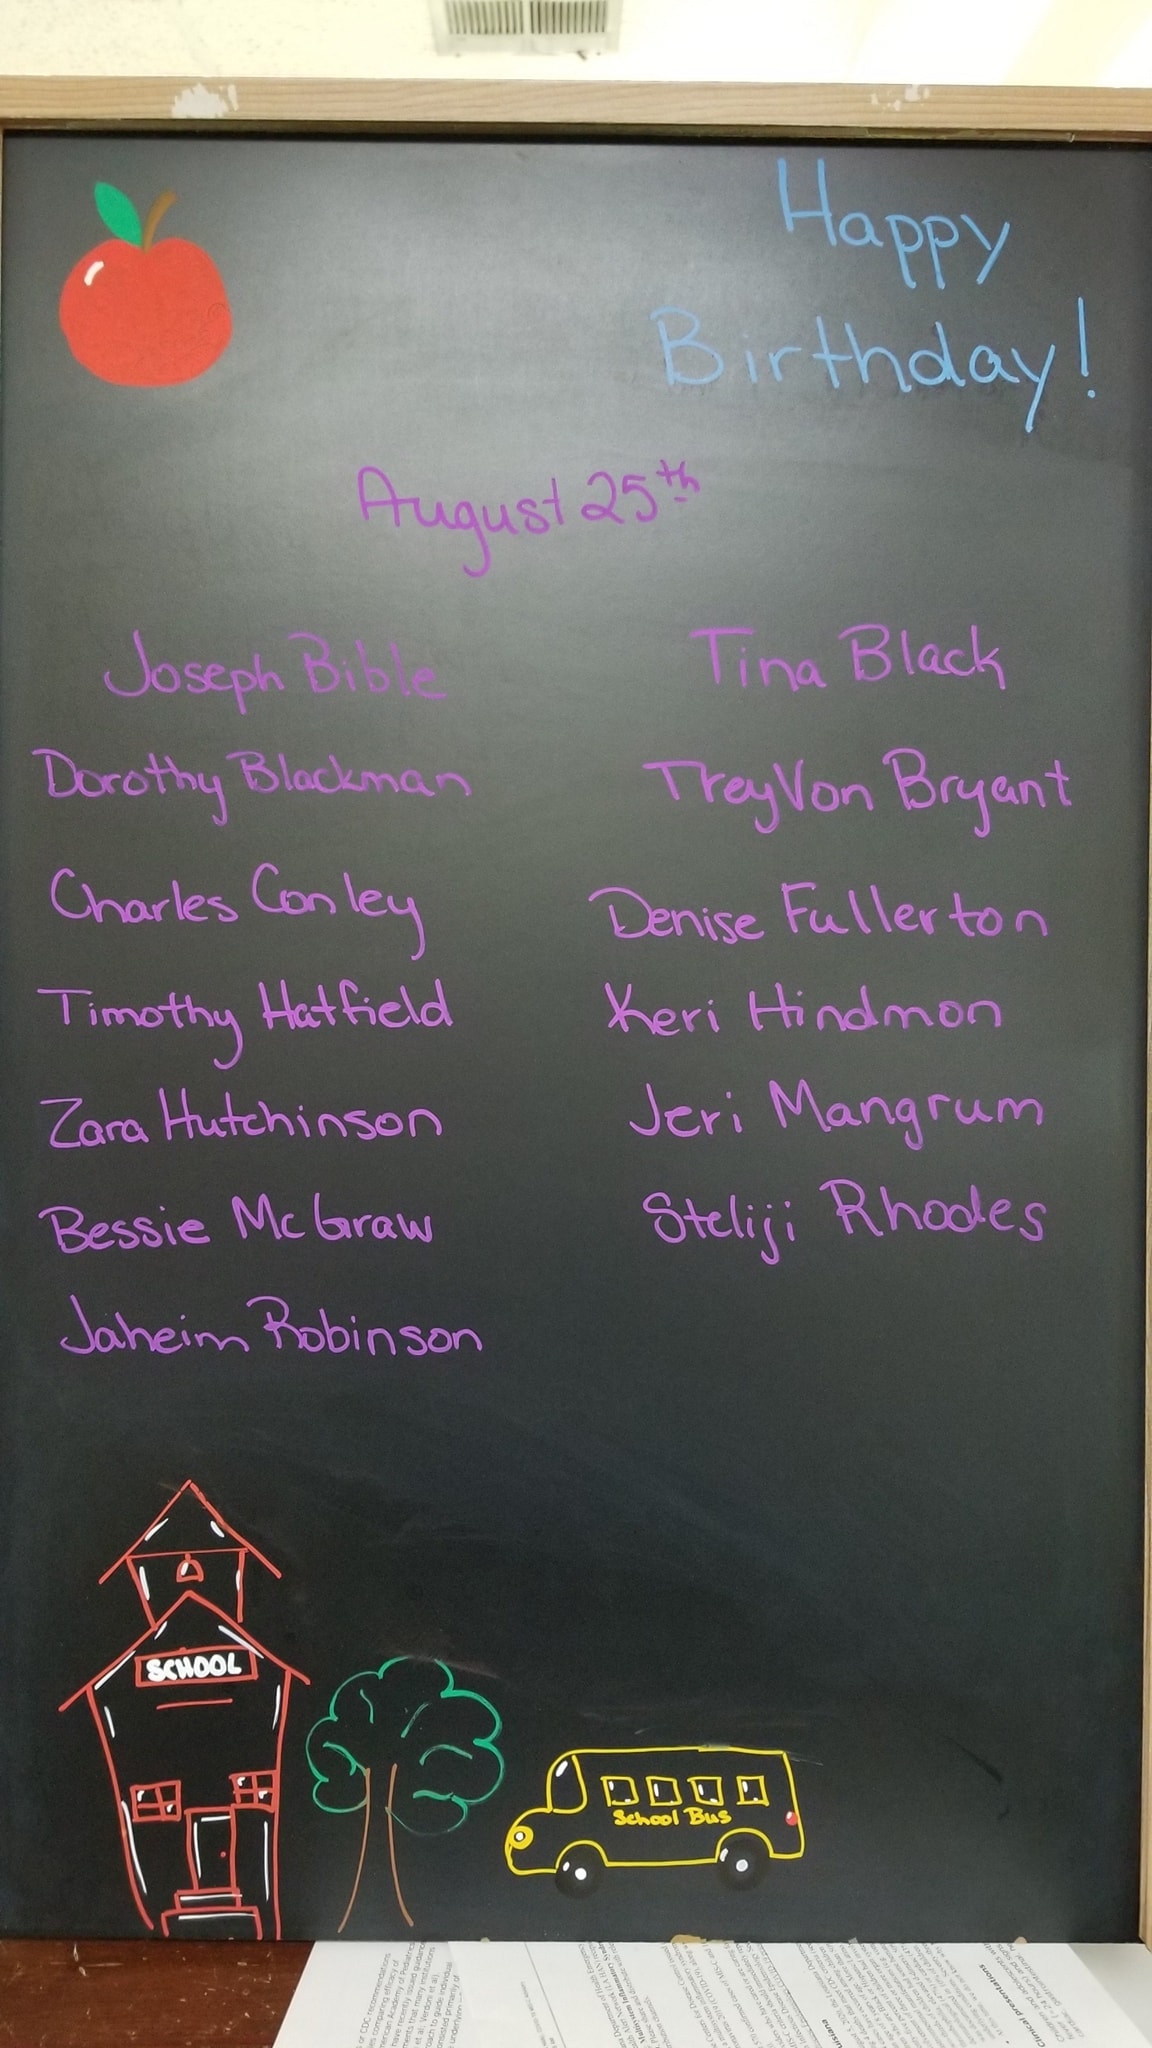 Happy
Birthday!
August 25th
Joseph Bible
Tina Black
Dorothy Blackman
TreyVon Bryant
Charles Conley
Denise Fullerton
Timothy Hatfield
Keri Hindmon
Zara Hutchinson
Jeri Mangrum
Bessie McGraw
Steliji Rhodes
Jaheim Robinson
SCHOOL
School Bus
Clinical presentations